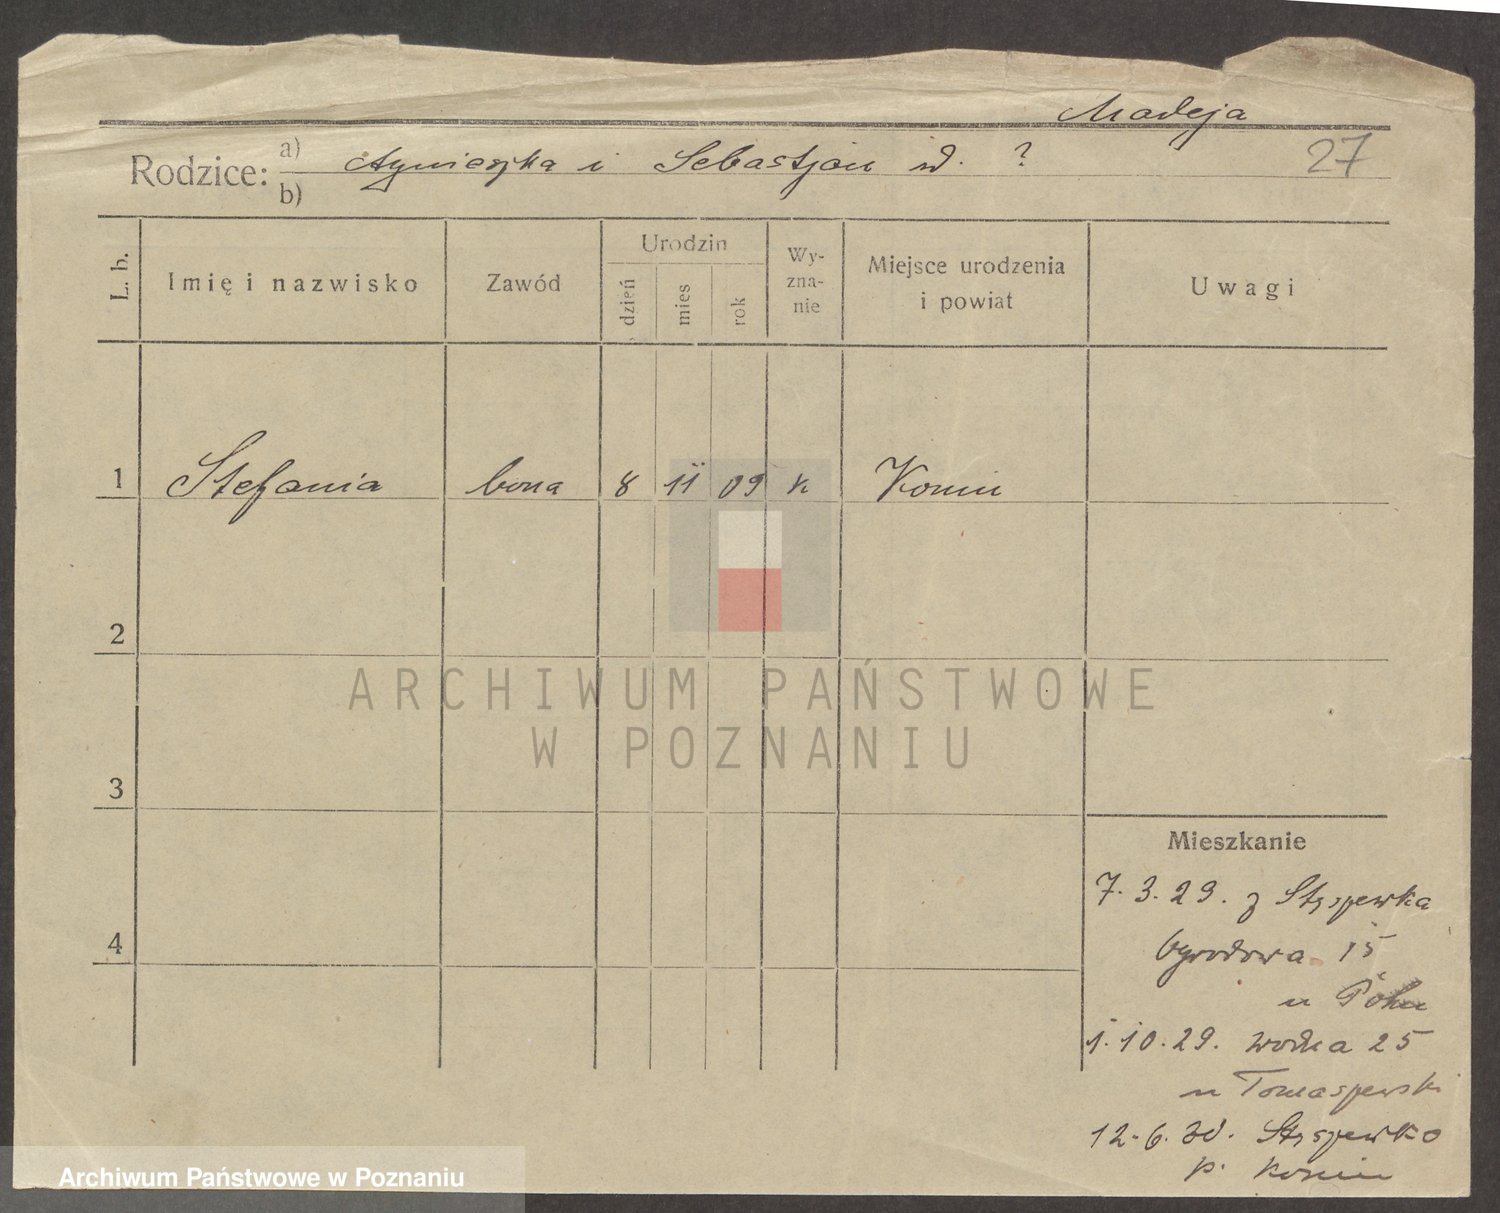 Madeja
27
Rodzice: a) Agnieszka i Sebastjan ?
b)
L. b.
Imię i nazwisko
Zawód
Urodzin
dzień
mies
rok
Wy-
zna-
nie
Miejsce urodzenia
i powiat
Uwagi
1 Stefania bona 8 11 09 k Konin
2
3
4
Mieszkanie
7. 3. 29. z
Ogrodowa 15
u
1. 10. 29. wodna 25
u Tomaszewski
12. 6. 30.
p. Konin
ARCHIWUM PAŃSTWOWE
W POZNANIU
Archiwum Państwowe w Poznaniu